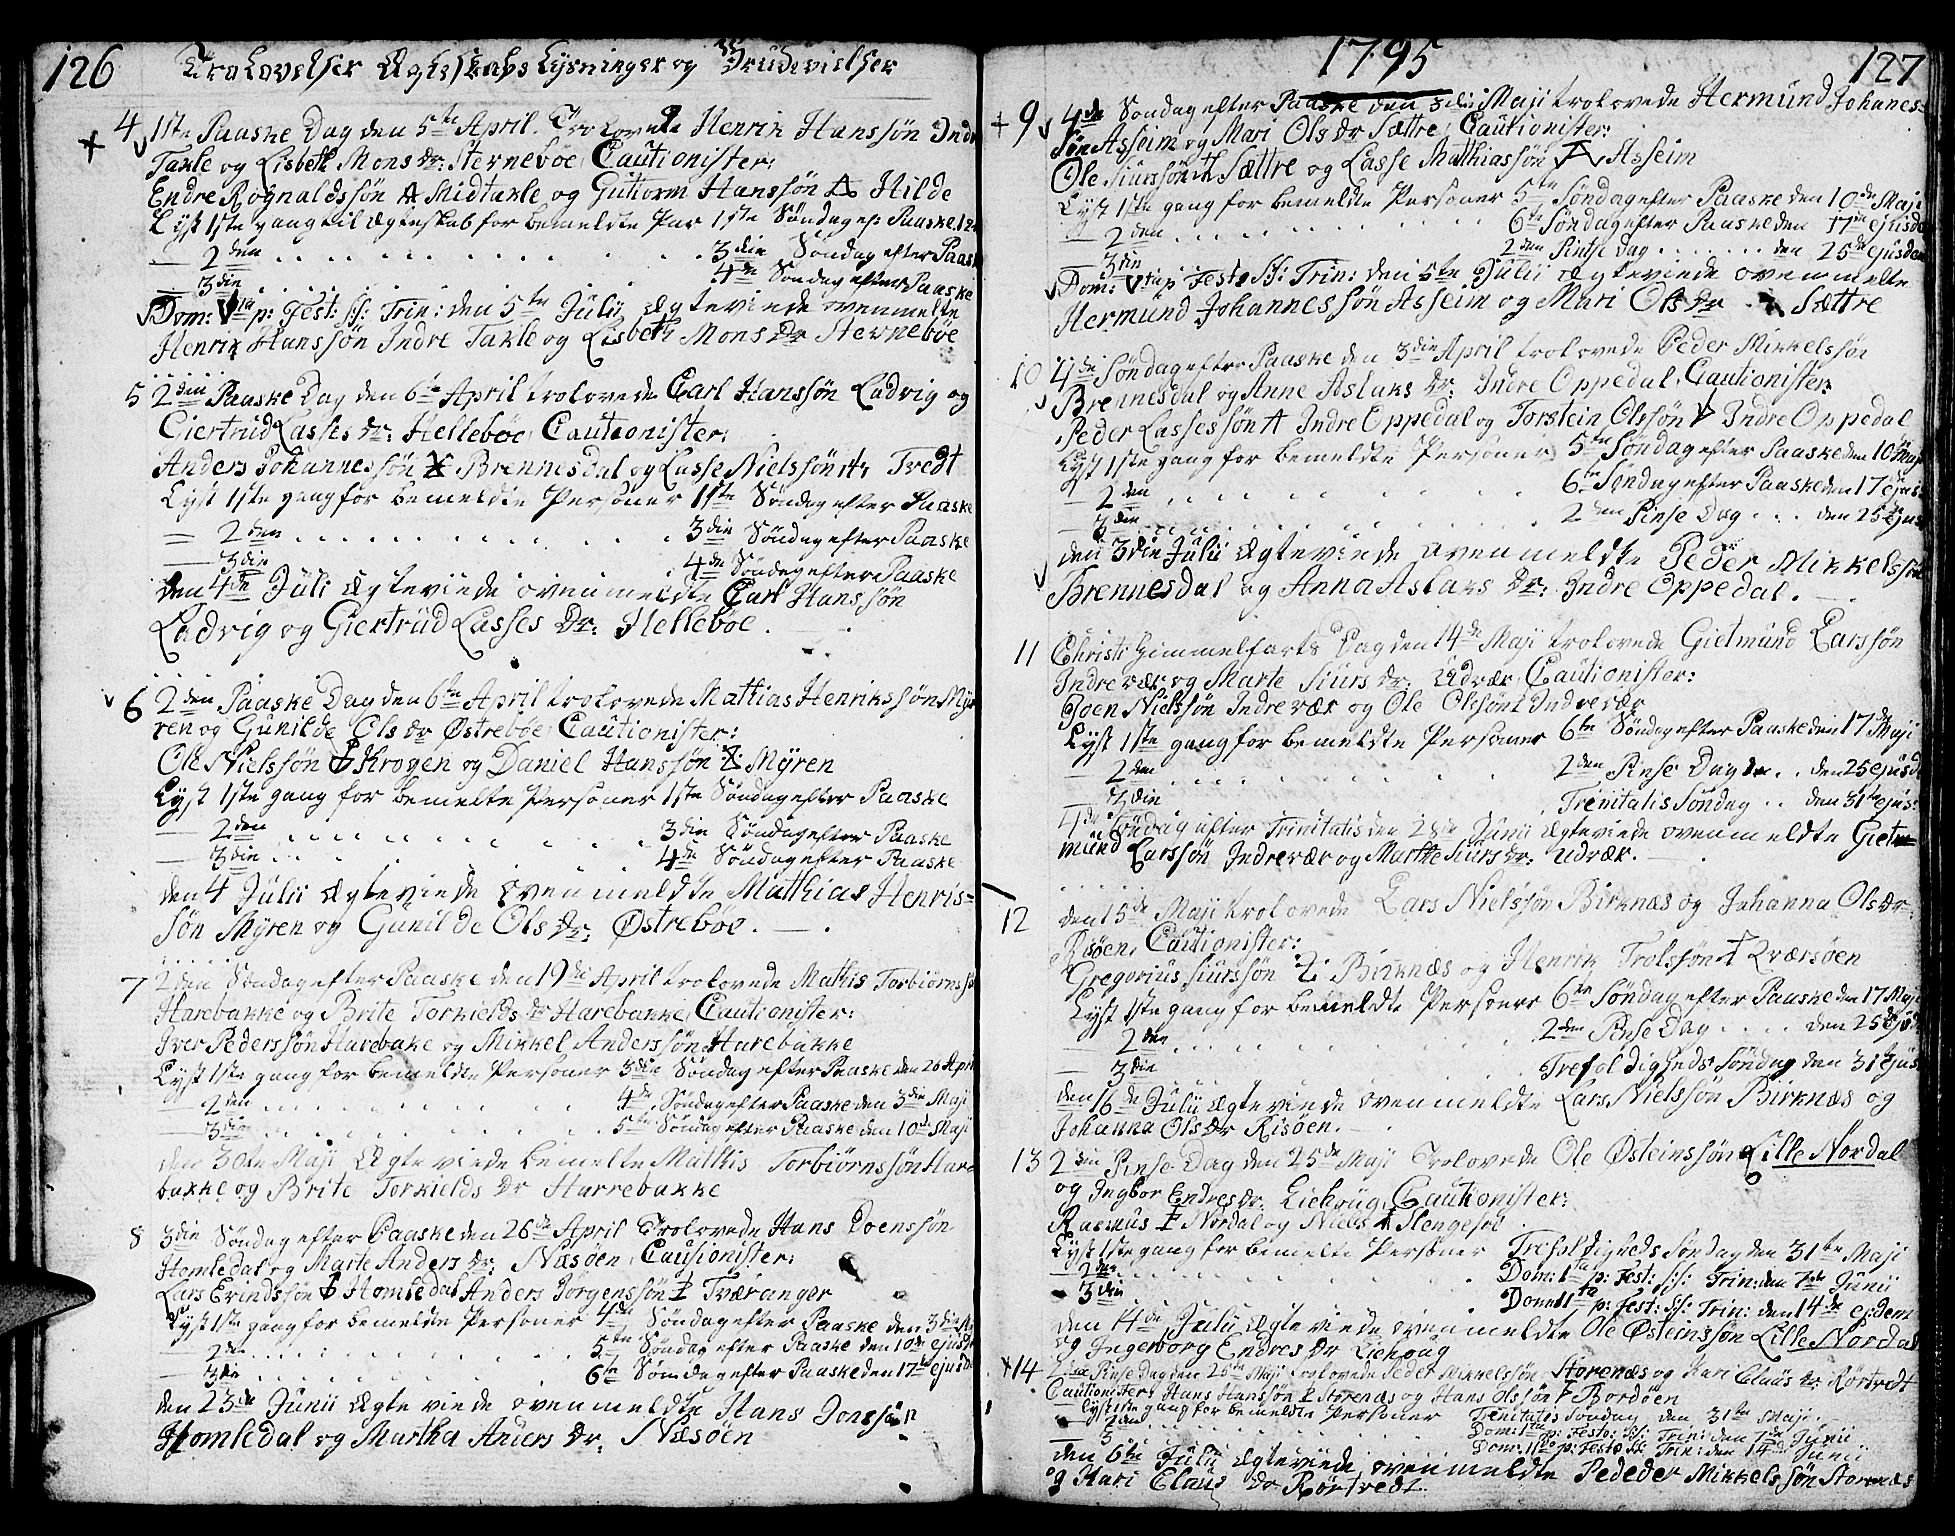 126 Trolovelser Ægteskabs Lysninger og Brudevielser
4 1ste Paaske Dag den 5te April. Trolovede Henrik Hanssøn Indre
Takle og Lisbeth Mons Dr: Sternebøe, Cautionister:
Endre Rognaldssøn Midtakle og Guttorm Hanssøn Hilde
Lyst 1ste gang til Ægteskab for bemeldte Par 1ste Søndag ef: Paaske 12
— 2den . . . 3die Søndag efter Paaske
— 3die . . . 4de Søndag efter Paaske
Dom: Vta p: Fest: SS: Trin: den 5te Julij Ægteviede ovenmelte
Henrik Hanssøn Indre Takle og Lisbeth Mons Dr Sternebøe
5 2den Paaske Dag den 6te April trolovede Carl Hanssøn Ladvig og
Giertrud Lasses Dr: Hellebøe, Cautionister:
Anders Johannessøn Brennesdal og Lasse Nielssøn Tredt
Lyst 1ste gang for bemeldte Personer 1ste Søndag efter Paaske
— 2den . . . 3die Søndag efter Paaske
— 3die . . . 4de Søndag efter Paaske
den 4de Juli Ægteviede ovenmeldte Carl Hanssøn
Ladvig og Giertrud Lasses Dr: Hellebøe.
6 2den Paaske Dag den 6te April trolovede Mathias Henrikssøn Myr
ren og Gunilde Ols Dr Østrebøe, Cautionister:
Ole Nielssøn Krogen og Daniel Hanssøn Myren
Lyst 1ste gang for bemelte Personer 1ste Søndag efter Paaske
— 2den . . . 3die Søndag efter Paaske
— 3die . . . 4de Søndag efter Paaske
den 4 Julii Ægteviede ovenmeldte Matthias Henris=
søn Myren og Gunilde Ols Dr: Østrebøe.
7 2den Søndag efter Paaske den 19de April trolovede Mathis Torbiørnssø
Harebakke og Brite Torkields Dr Harebakke, Cautionister:
Iver Pederssøn Harebake og Mikkel Anderssøn Harebakke
Lyst 1ste gang for bemeldte Personer 3die Søndag efter Paaske den 26 Apri
— 2den . . . 4de Søndag efter Paaske den 3die Maji
— 3die . . . 5te Søndag efter Paaske den 10de Maji
den 30te Maji Ægteviede bemelte Mathis Torbiørnssøn Hare
bakke og Brite Torkields Dr Harrebakke
8 3die Søndag efter Paaske den 26de April Trolovede Hans Joenssøn
Homledal og Marte Anders Dr: Næsøen, Cautionister:
Lars Erindssøn Homledal Anders Jørgenssøn Tværanger
Lyst 1ste gang for bemeldte Personer 4de Søndag efter Paaske den 3die
— 2den . . . 5te Søndag efter Paaske den 10de ejusd
— 3die . . . 6te Søndag efter Paaske den 17de ejusd
den 23de Junii Ægteviede ovenmeldte Hans Jonssøn
Homledal og Martha Anders Dr: Næsøen
1795 127
9 4de Søndag efter Paaske den 3die Maji trolovede Hermund Johanes=
søn Asseim og Mari Ols Dr Sættre, Cautionister:
Ole Siurssøn Sættre og Lasse Matthiassøn Asseim
Lyst 1ste gang for bemeldte Personer 5te Søndag efter Paaske den 10de Maji
— 2den . . . 6te Søndag efter Paaske den 17de ejusd
— 3die . . . 2den Pintse dag . . . den 25de ejusdem
Dom: Vta p Festo SS: Trin: den 5te Julii Ægteviede ovenmelte
Hermund Johannessøn Asseim og Mari Ols Dr Sættre
10 4de Søndag efter Paaske den 3die April trolovede Peder Mikkelssøn
Brennesdal og Anne Aslaks Dr: Indre Oppedal, Cautionister:
Peder Lassessøn Indre Oppedal og Torstein Olssøn Indre Oppedal
Lyst 1ste gang for bemeldte Personer 5te Søndag efter Paaske den 10de Maji
— 2den . . . 6te Søndag efter Paaske den 17 ejus
— 3die . . . 2den Pinse Dag . . . den 25de ejus
den 3die Julii Ægteviede ovenmeldte Peder Mikkelssøn
Brennesdal og Anna Aslaks Dr: Indre Oppedal.
11 Christi Himmelfarts Dag den 14de Maji trolovede Gietmund Larssøn
Indrevær og Marte Siurs Dr. Udvær, Cautionister:
Joen Nielssøn Indrevær og Ole Olssøn Indrevær
Lyst 1ste gang for bemeldte Personer 6te Søndag efter Paaske den 17de Maji
— 2den . . . 2den Pinse Dag . . den 25 ejusd
3die . . . Trinitatis Søndag . . den 31te ejus:
4de Søndag efter Trinitatis den 28de Junii Ægteviede ovenmeldte Giet=
mund Larssøn Indrevær og Marthe Siurs Dr: Udvær.
12 den 15de Maji trolovede Lars Nielssøn Birknæs og Johanna Ols Dr
Risøen, Cautionister:
Gregorius Siurssøn Birknæs og Henrik Trolssøn Kværsøen
Lyst 1ste gang for bemeldte Personer 6te Søndag efter Paaske den 17 Maji
— 2den . . . 2den Pinse Dag . . . den 25de ejusd
— 3die . . . Trefoldigheds Søndag den 31te ejus
den 16de Julii Ægteviede ovenmeldte Lars Nielssøn Birknæs og
Johanna Ols Dr Risøen.
13 2den Pinse Dag den 25de Maji Trolovede Ole Østeinssøn Lille Nordal
og Ingbor Endres Dr. Liehoug, Cautionister:
Rasmus Nordal og Niels Slengesol
Lyst 1ste gang for bemelte Personer Trefoldigheds Søndag den 31te Maji
— 2den . . . Dom: 1ta p: Fest: SS: Trin: den 7de Junii
3die . . . Dom: 1ta p: Fest: SS: Trin: den 14de ejusdem
den 14de Julii Ægteviede ovenmeldte Ole Østeinssøn Lille Nordal
og Ingeborg Endres Dr Liehoug
14 2den Pinse Dag den 25de Maji trolovede Peder Mikkelssøn Storenæs og Kari Claus Dr: Rørtvedt
Cautionister, Hans Hanssøn Storenæs og Hans Olssøn Bordøen
Lyst 1ste gang for bemeldte Personer Trinitatis Søndag den 31te Maji
2den . . . Dom: 1ta p: Festo: SS: Trin: den 7de Junii
3 . . . Dom: 1ta p: Festo SS: Trin: den 14de Junii
den 6te Julii Ægteviede ovenmeldte Pededer Mikkelssøn Storenæs
og Kari Claus Dr Rørtvedt.